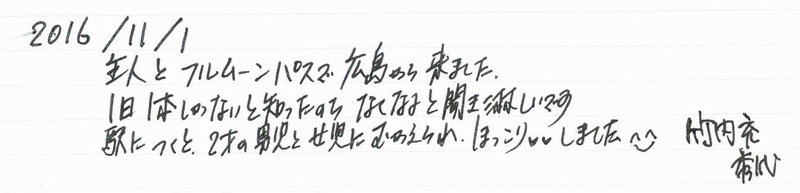 2016/11/1
主人とフルムーンパスで広島から来ました.
1日1本しかないと知ったのち なくなると聞き淋しいです
駅につくと、2才の男児と女児にむかえられ.ほっこり♡♡しました^^ 竹内充
秀代